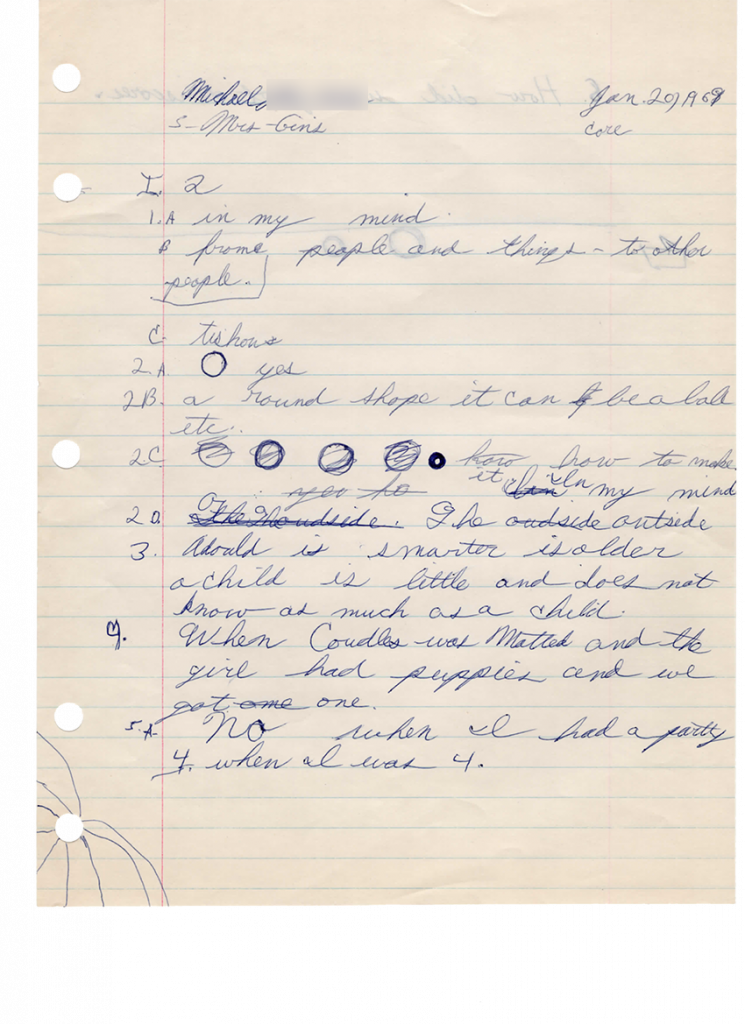 Michael Jan. 20, 1969
5 - Mrs - Gins core
I. 2
1. A in my mind.
B frome people and things - to other
people.
C. tishows
2. A. yes
2B. a round shape it can be a ball
etc..
2C how how to make
you to it in In my mind
2 D. The oudside. The oudside outside
3. Adould is smarter is older
a child is little and does not
know as much as a child.
4. When Coudles was Matted and the
girl had puppies and we
got ome one.
5. A- No when I had a party
4. when I was 4.